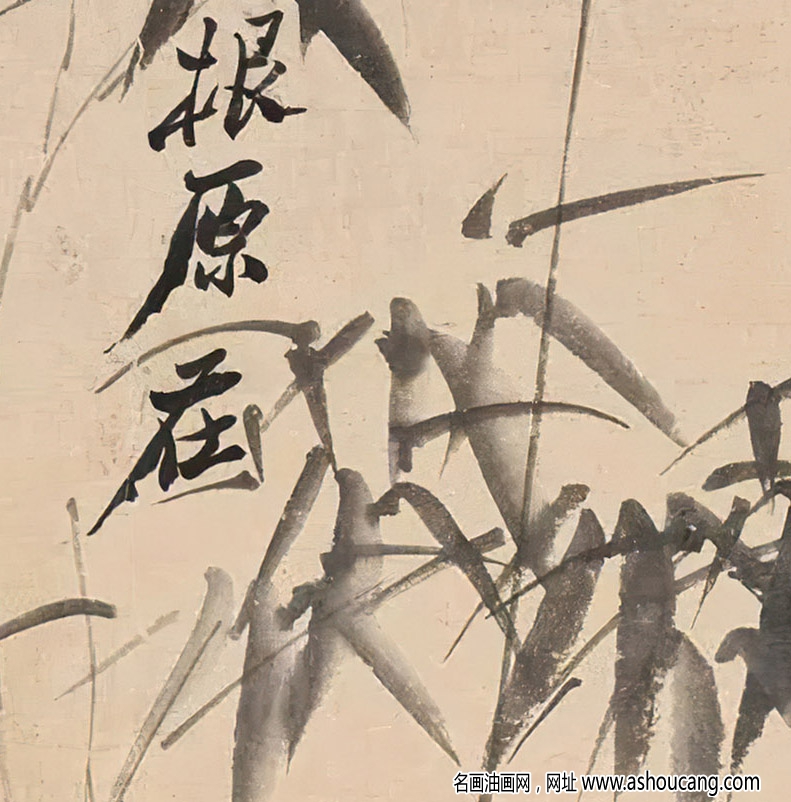 根原在
名画油画网，网址 www.ashoucang.com